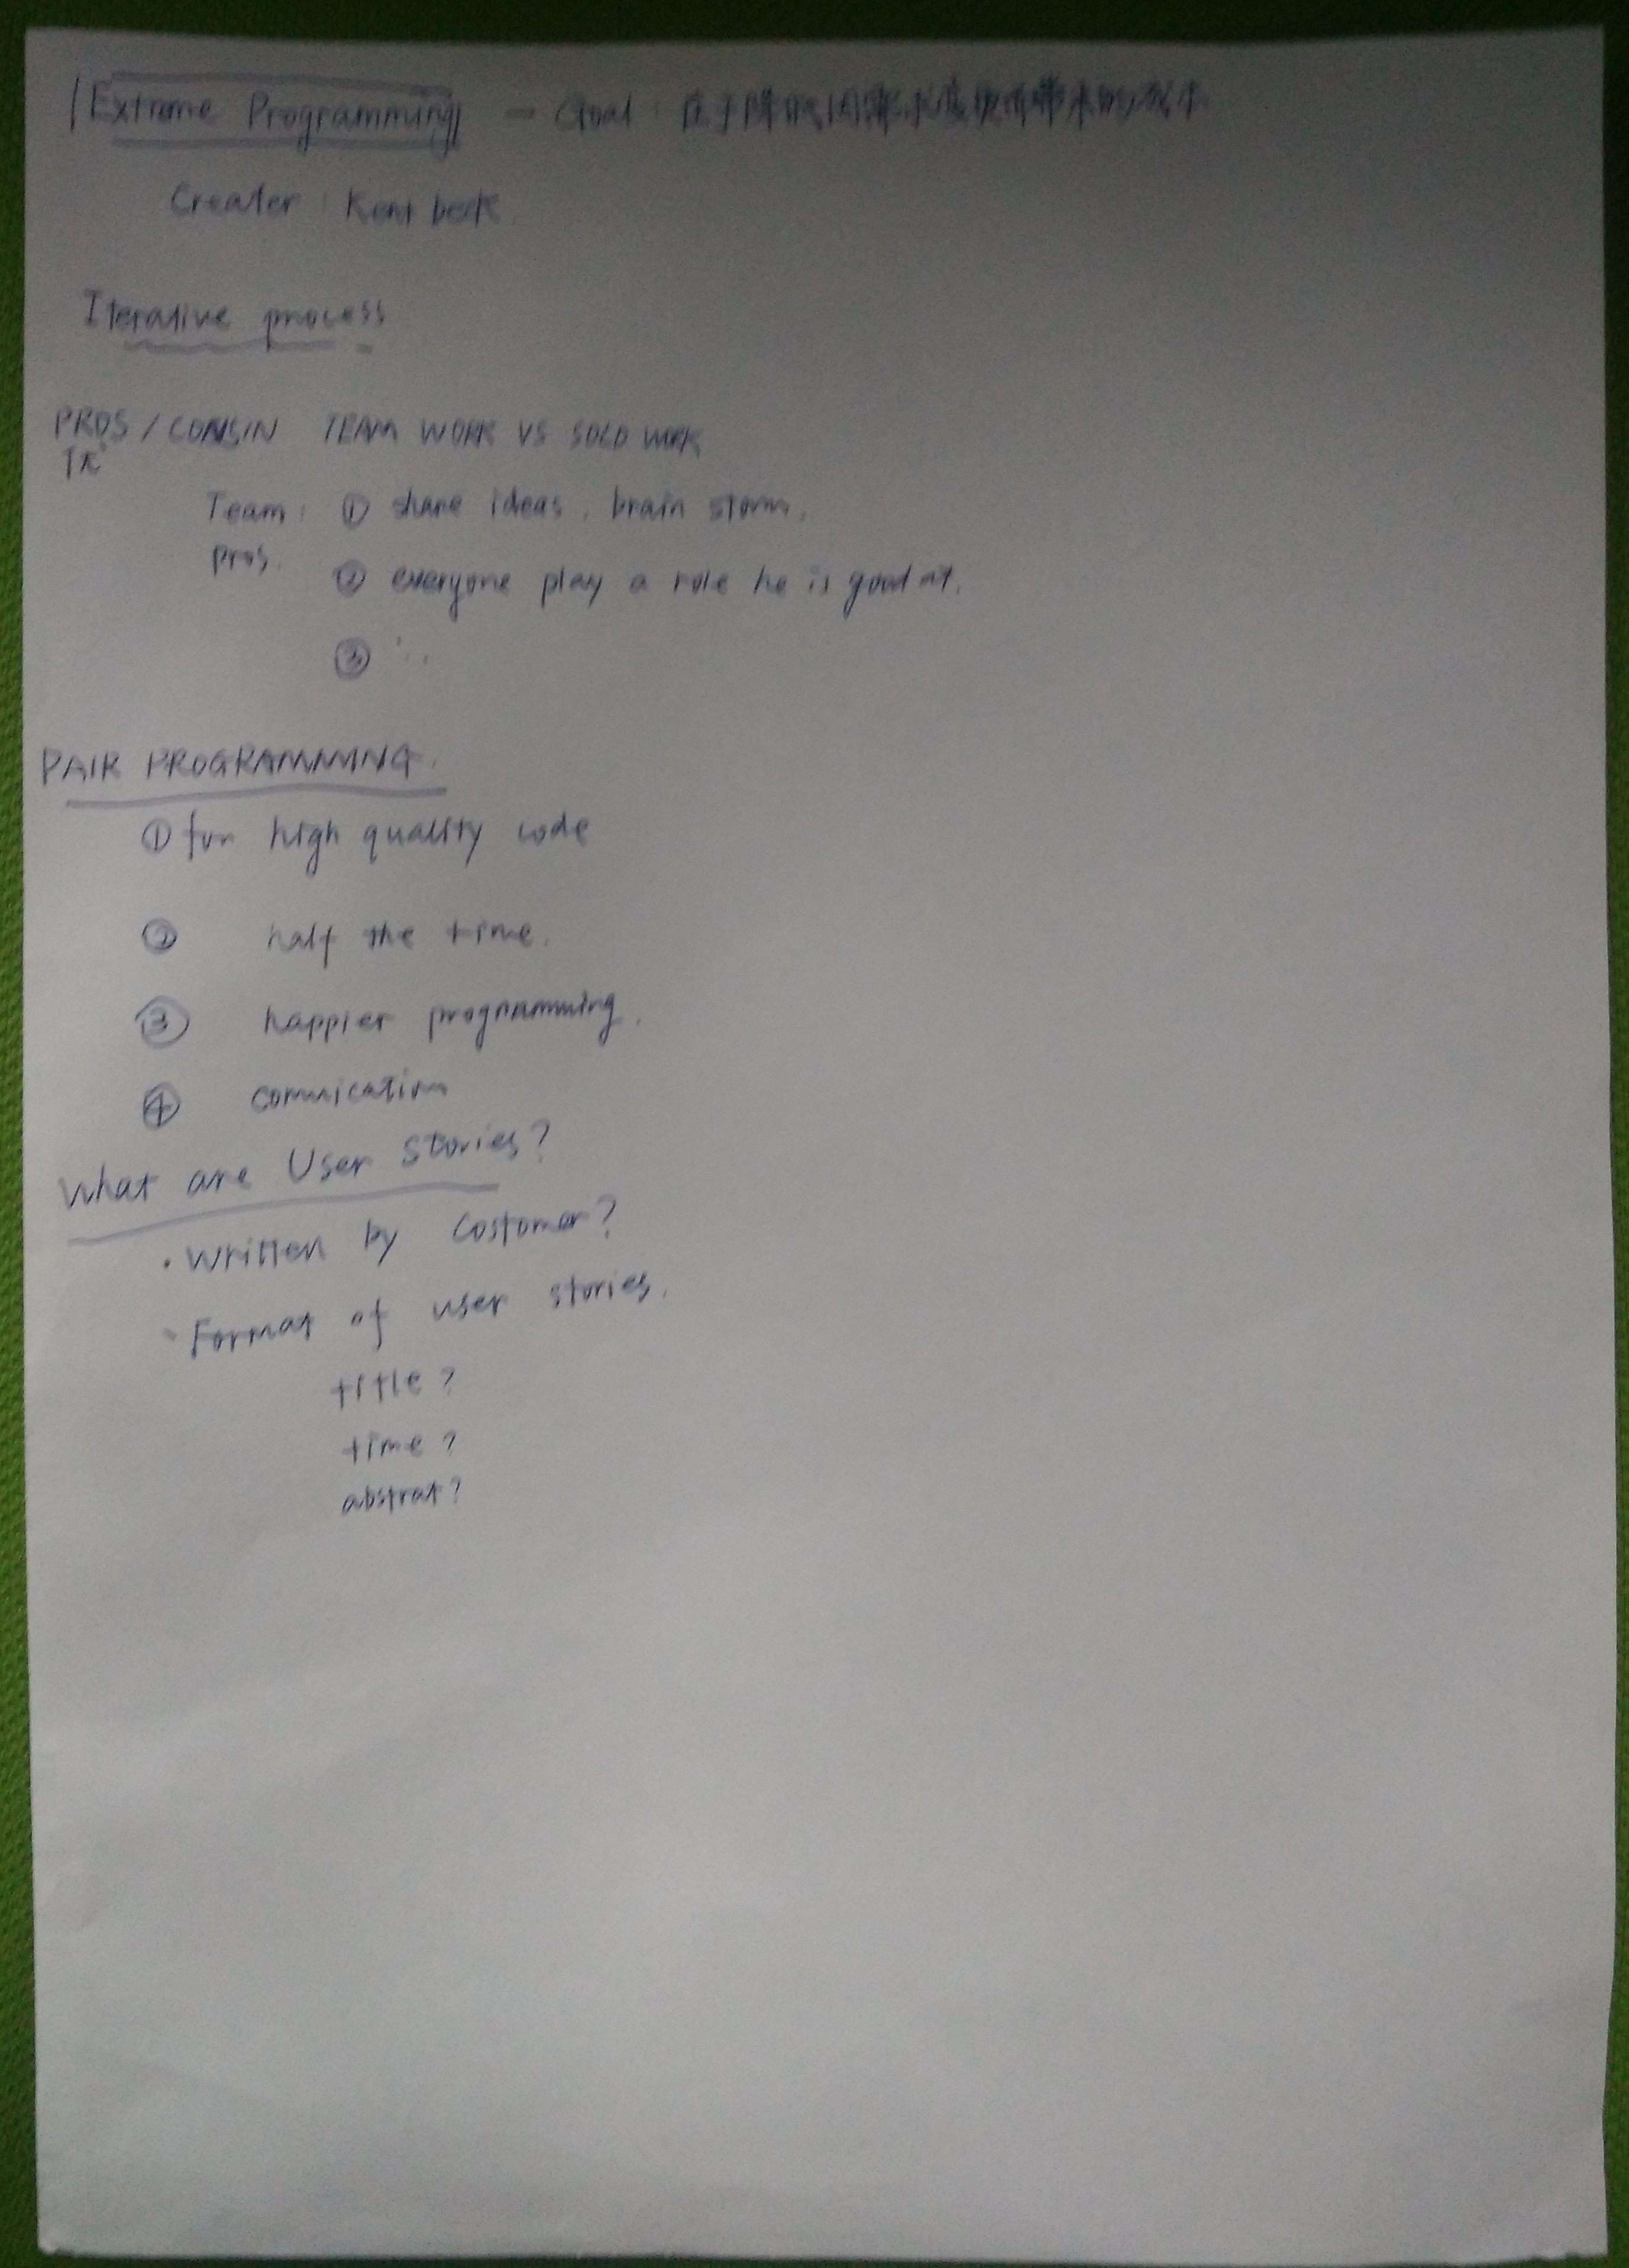 Extreme Programming — Goal: 在于降低因需求变更而带来的成本
Creater: Kent beck
Iterative process
PROS / CONSIN TEAM WORK VS SOLO WORK
Team: ① share ideas, brain storm.
Pros.
② everyone play a role he is good at.
③ ...
PAIR PROGRAMMING.
① for high quality code
② half the time.
③ happier programming.
④ comnication
What are User Stories?
· Written by Costomer?
· Format of user stories.
title?
time?
abstrat?